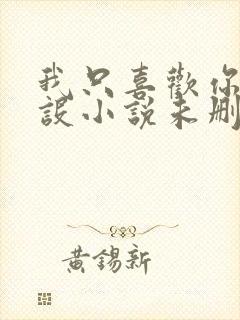 我只喜歡你
設小說未刪
黃錫新